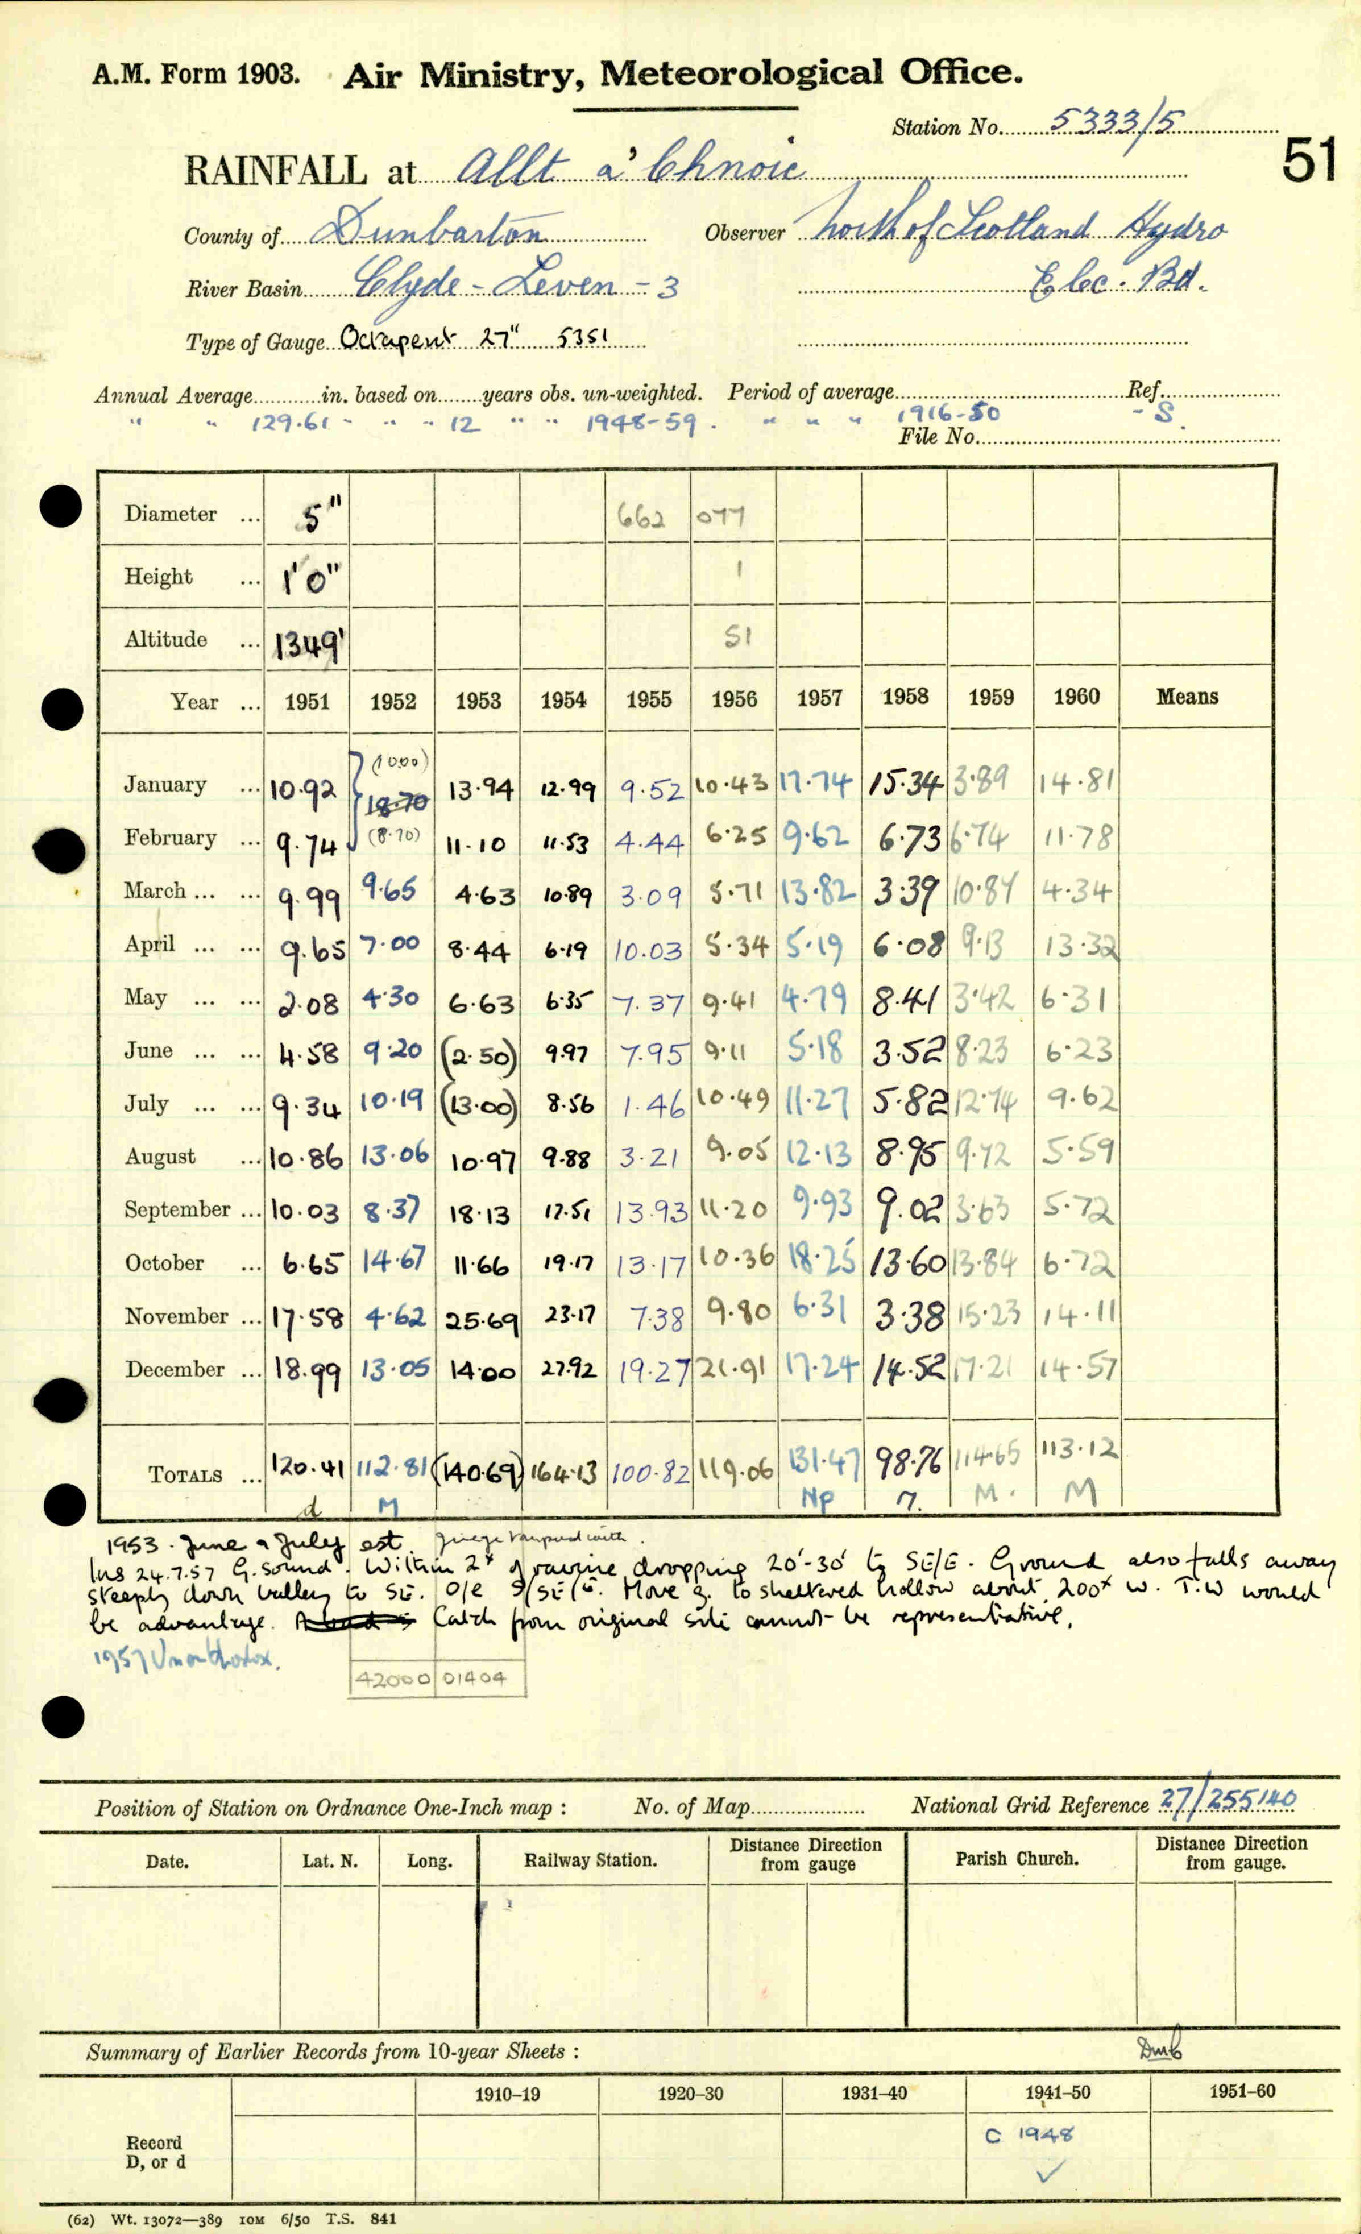 A.M. Form 1903. Air Ministry, Meteorological Office.
Station No. 5333/5
51
RAINFALL at Allt a' Chnoic
County of Dunbarton Observer North of Scotland Hydro
River Basin Clyde - Leven - 3 Elec. Bd.
Type of Gauge Octapent 27" 5351
Annual Average in. based on years obs. un-weighted. Period of average Ref.
" " 129.61 " " " 12 " " 1948-59. " " " 1916-50 - S.
File No.
Diameter ... 5" 662 077
Height ... 1'0" 1
Altitude ... 1349' 51
Year ... 1951 1952 1953 1954 1955 1956 1957 1958 1959 1960 Means
(10.00)
January ... 10.92 18.70 13.94 12.99 9.52 10.43 17.74 15.34 3.89 14.81
February ... 9.74 (8.70) 11.10 11.53 4.44 6.25 9.62 6.73 6.74 11.78
March ... ... 9.99 9.65 4.63 10.89 3.09 5.71 13.82 3.39 10.87 4.34
April ... ... 9.65 7.00 8.44 6.19 10.03 5.34 5.19 6.08 9.13 13.32
May ... ... 2.08 4.30 6.63 6.35 7.37 9.41 4.79 8.41 3.42 6.31
June ... ... 4.58 9.20 (2.50) 9.97 7.95 9.11 5.18 3.52 8.23 6.23
July ... ... 9.34 10.19 (13.00) 8.56 1.46 10.49 11.27 5.82 12.74 9.62
August ... 10.86 13.06 10.97 9.88 3.21 9.05 12.13 8.95 9.72 5.59
September ... 10.03 8.37 18.13 17.51 13.93 11.20 9.93 9.02 3.63 5.72
October ... 6.65 14.67 11.66 19.17 13.17 10.36 18.25 13.60 13.84 6.72
November ... 17.58 4.62 25.69 23.17 7.38 9.80 6.31 3.38 15.23 14.11
December ... 18.99 13.05 14.00 27.92 19.27 21.91 17.24 14.52 17.21 14.57
TOTALS ... 120.41 112.81 (140.69) 164.13 100.82 119.06 131.47 98.76 114.65 113.12
d M Np M. M
1953. June & July est.
Ins 24.7.57 G. sound. Within 2x of ravine dropping 20'-30' to SE/E. Ground also falls away
steeply down valley to SE. O/E S/SE/E. Move g. to sheltered hollow about 200x W. T.W would
be advantage. Catch from original site cannot be representative.
1957 Unorthodox.
42000 01404
Position of Station on Ordnance One-Inch map : No. of Map National Grid Reference 27/255140
Date. Lat. N. Long. Railway Station. Distance Direction from gauge Parish Church. Distance Direction from gauge.
Summary of Earlier Records from 10-year Sheets : Dmb
1910–19 1920–30 1931–40 1941–50 1951–60
Record C 1948
D, or d ✓
(62) Wt. 13072—389 10M 6/50 T.S. 841